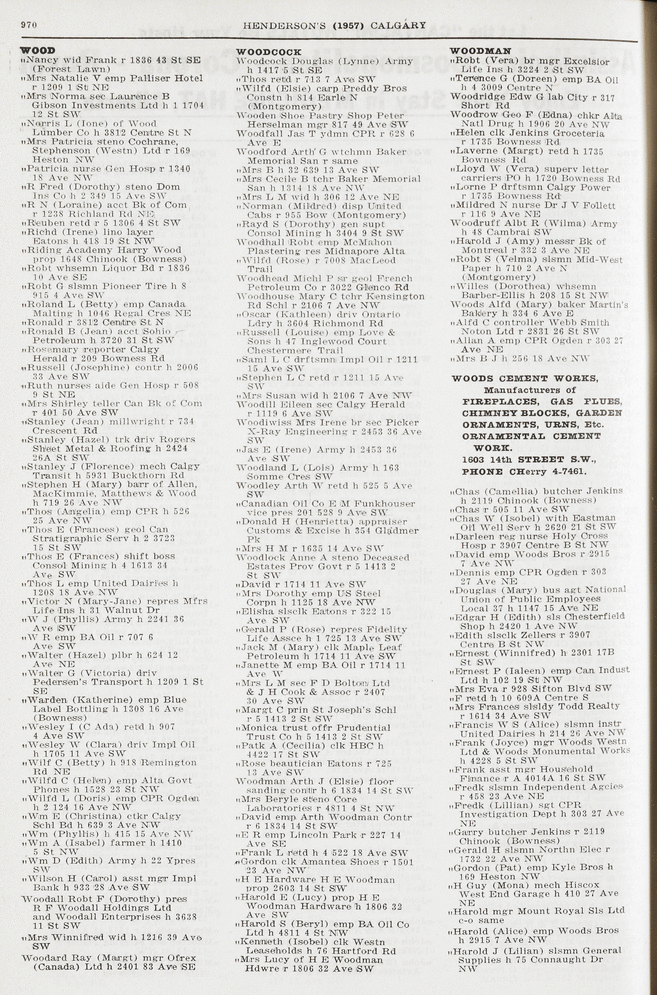 970
HENDERSON'S (1957) CALGARY
WOOD
„Nancy wid Frank r 1836 43 St SE
(Forest Lawn)
„Mrs Natalie V emp Palliser Hotel
r 1209 1 St NE
„Mrs Norma sec Laurence B
Gibson Investments Ltd h 1 1704
12 St SW
„Norris L (Ione) of Wood
Lumber Co h 3812 Centre St N
„Mrs Patricia steno Cochrane,
Stephenson (Westn) Ltd r 169
Heston NW
„Patricia nurse Gen Hosp r 1340
18 Av NW
„R Fred (Dorothy) steno Dom
Ins Co h 2 349 15 Ave SW
„R N (Loraine) acct Bk of Com
r 1238 Richland Rd NE
„Reuben retd r 5 1306 4 St SW
„Richd (Irene) lino layer
Eatons h 418 19 St NW
„Riding Academy Harry Wood
prop 1648 Chinook (Bowness)
„Robt whsemn Liquor Bd r 1836
10 Ave SE
„Robt G slsmn Pioneer Tire h 8
915 4 Ave SW
„Roland L (Betty) emp Canada
Malting h 1046 Regal Cres NE
„Ronald r 3812 Centre St N
„Ronald B (Jean) acct Sohio
Petroleum h 3720 31 St SW
„Rosemary reporter Calgy
Herald r 209 Bowness Rd
„Russell (Josephine) contr h 2006
33 Ave SW
„Ruth nurses aide Gen Hosp r 508
9 St NE
„Mrs Shirley teller Can Bk of Com
r 401 50 Ave SW
„Stanley (Jean) millwright r 734
Crescent Rd
„Stanley (Hazel) trk driv Rogers
Sheet Metal & Roofing h 2424
26A St SW
„Stanley J (Florence) mech Calgy
Transit h 5931 Buckthorn Rd
„Stephen H (Mary) barr of Allen,
MacKimmie, Matthews & Wood
h 719 26 Av NW
„Thos (Angelia) emp CPR h 526
25 Av NW
„Thos E (Frances) geol Can
Stratigraphic Serv h 2 3723
15 St SW
„Thos E (Frances) shift boss
Consol Mining h 4 1613 34
Ave SW
„Thos L emp United Dairies h
1208 18 Ave NW
„Victor N (Mary-Jane) repres Mfrs
Life Ins h 31 Walnut Dr
„W J (Phyllis) Army h 2241 36
Ave SW
„W R emp BA Oil r 707 6
Ave SW
„Walter (Hazel) plbr h 624 12
Ave NE
„Walter G (Victoria) driv
Pedersen's Transport h 1209 1 St
SE
„Warden (Katherine) emp Blue
Label Bottling h 1308 16 Ave
(Bowness)
„Wesley I (C Ada) retd h 907
4 Ave SW
„Wesley W (Clara) driv Impl Oil
h 1705 11 Ave SW
„Wilf C (Betty) h 918 Remington
Rd NE
„Wilfd C (Helen) emp Alta Govt
Phones h 1528 23 St NW
„Wilfd L (Doris) emp CPR Ogden
h 2 124 16 Ave NW
„Wm E (Christina) ctkr Calgy
Schl Bd h 639 3 Ave NW
„Wm (Phyllis) h 415 15 Av NW
„Wm A (Isabel) farmer h 1410
5 St NW
„Wm D (Edith) Army h 22 Ypres
SW
„Wilson H (Carol) asst mgr Impl
Bank h 933 28 Ave SW
Woodall Robt F (Dorothy) pres
R F Woodall Holdings Ltd
and Woodall Enterprises h 3638
11 St SW
„Mrs Winnifred wid h 1216 39 Ave
SW
Woodard Ray (Margt) mgr Ofrex
(Canada) Ltd h 2401 83 Ave SE
WOODCOCK
Woodcock Douglas (Lynne) Army
h 1417 5 St SE
„Thos retd r 713 7 Ave SW
„Wilfd (Elsie) carp Preddy Bros
Constn h 814 Earle N
(Montgomery)
Wooden Shoe Pastry Shop Peter
Herselman mgr 817 49 Ave SW
Woodfall Jas T ydmn CPR r 628 6
Ave E
Woodford Arth G wtchmn Baker
Memorial San r same
„Mrs B h 32 639 13 Ave SW
„Mrs Cecile B tchr Baker Memorial
San h 1314 18 Ave NW
„Mrs L M wid h 306 12 Ave NE
„Norman (Mildred) disp United
Cabs r 955 Bow (Montgomery)
„Rayd S (Dorothy) gen supt
Consol Mining h 3404 9 St SW
Woodhall Robt emp McMahon
Plastering res Midnapore Alta
„Wilfd (Rose) r 7008 MacLeod
Trail
Woodhead Michl P sr geol French
Petroleum Co r 3022 Glenco Rd
Woodhouse Mary C tchr Kensington
Rd Schl r 2106 7 Av NW
„Oscar (Kathleen) driv Ontario
Ldry h 3604 Richmond Rd
„Russell (Louise) emp Love &
Sons h 47 Inglewood Court
Chestermere Trail
„Saml L C drftsmn Impl Oil r 1211
15 Ave SW
„Stephen L C retd r 1211 15 Ave
SW
„Mrs Susan wid h 2106 7 Ave NW
Woodill Eileen sec Calgy Herald
r 1119 6 Ave SW
Woodiwiss Mrs Irene br sec Picker
X-Ray Engineering r 2453 36 Ave
SW
„Jas E (Irene) Army h 2453 36
Ave SW
Woodland L (Lois) Army h 163
Somme Cres SW
Woodley Arth W retd h 525 5 Ave
SW
„Canadian Oil Co E M Funkhouser
vice pres 201 528 9 Ave SW
„Donald H (Henrietta) appraiser
Customs & Excise h 354 Gladmer
Pk
„Mrs H M r 1635 14 Ave SW
Woodlock Anne A steno Deceased
Estates Prov Govt r 5 1413 2
St SW
„David r 1714 11 Ave SW
„Mrs Dorothy emp US Steel
Corpn h 1125 18 Ave NW
„Elisha slsclk Eatons r 322 15
Ave SW
„Gerald P (Rose) repres Fidelity
Life Assce h 1 725 13 Ave SW
„Jack M (Mary) clk Maple Leaf
Petroleum h 1714 11 Ave SW
„Janette M emp BA Oil r 1714 11
Ave W
„Mrs L M sec F D Bolton Ltd
& J H Cook & Assoc r 2407
30 Ave SW
„Margt C prin St Joseph's Schl
r 5 1413 2 St SW
„Monica trust offr Prudential
Trust Co h 5 1413 2 St SW
„Patk A (Cecilia) clk HBC h
4422 17 St SW
„Rose beautician Eatons r 725
13 Ave SW
Woodman Arth J (Elsie) floor
sanding contr h 6 1834 14 St SW
„Mrs Beryle steno Core
Laboratories r 4811 4 St NW
„David emp Arth Woodman Contr
r 6 1834 14 St SW
„E R emp Lincoln Park r 227 14
Ave SE
„Frank L retd h 4 522 18 Ave SW
„Gordon clk Amantea Shoes r 1501
23 Ave NW
„H E Hardware H E Woodman
prop 2603 14 St SW
„Harold E (Lucy) prop H E
Woodman Hardware h 1806 32
Ave SW
„Harold S (Beryl) emp BA Oil Co
Ltd h 4811 4 St NW
„Kenneth (Isobel) clk Westn
Leaseholds h 76 Hartford Rd
„Mrs Lucy of H E Woodman
Hdwre r 1806 32 Ave SW
WOODMAN
„Robt (Vera) br mgr Excelsior
Life Ins h 3224 2 St SW
„Terence G (Doreen) emp BA Oil
d 4 3009 Centre N
Woodridge Edw G lab City r 317
Short Rd
Woodrow Geo F (Edna) chkr Alta
Natl Drug h 1906 20 Ave NW
„Helen clk Jenkins Groceteria
r 1735 Bowness Rd
„Laverne (Margt) retd h 1735
Bowness Rd
„Lloyd W (Vera) superv letter
carriers PO h 1720 Bowness Rd
„Lorne P drftsmn Calgy Power
r 1735 Bowness Rd
„Mildred N nurse Dr J V Follett
r 116 9 Ave NE
Woodruff Albt R (Wilma) Army
h 48 Cambrai SW
„Harold J (Amy) messr Bk of
Montreal r 332 3 Ave NE
„Robt S (Velma) slsmn Mid-West
Paper h 710 2 Av N
(Montgomery)
„Willes (Dorothea) whsemn
Barber-Ellis h 208 15 St NW
Woods Alfd (Mary) baker Martin's
Bakery h 334 6 Ave E
„Alfd C controller Webb Smith
Noton Ltd r 2831 26 St SW
„Allan A emp CPR Ogden r 303 27
Ave NE
„Mrs B J h 256 18 Ave NW
WOODS CEMENT WORKS,
Manufacturers of
FIREPLACES, GAS FLUES,
CHIMNEY BLOCKS, GARDEN
ORNAMENTS, URNS, Etc.
ORNAMENTAL CEMENT
WORK.
1603 14th STREET S.W.,
PHONE CHerry 4-7461.
„Chas (Camellia) butcher Jenkins
h 2119 Chinook (Bowness)
„Chas r 505 11 Ave SW
„Chas W (Isobel) with Eastman
Oil Well Serv h 2620 21 St SW
„Darleen reg nurse Holy Cross
Hosp r 3907 Centre B St NW
„David emp Woods Bros r 2915
7 Ave NW
„Dennis emp CPR Ogden r 303
27 Ave NE
„Douglas (Mary) bus agt National
Union of Public Employees
Local 37 h 1147 15 Ave NE
„Edgar H (Edith) sls Chesterfield
Shop h 2420 1 Ave NW
„Edith slsclk Zellers r 3907
Centre B St NW
„Ernest (Winnifred) h 2301 17B
St SW
„Ernest P (Ialeen) emp Can Indust
Ltd h 102 19 St NW
„Mrs Eva r 928 Sifton Blvd SW
„F retd h 10 609A Centre S
„Mrs Frances slsldy Todd Realty
r 1614 34 Ave SW
„Francis W S (Alice) slsmn instr
United Dairies h 214 26 Av NW
„Frank (Joyce) mgr Woods Westn
Ltd & Woods Monumental Works
h 4228 5 St SW
„Frank asst mgr Household
Finance r A 4014A 16 St SW
„Fredk slsmn Independent Agcies
r 458 23 Ave NE
„Fredk (Lillian) sgt CPR
Investigation Dept h 303 27 Ave
NE
„Garry butcher Jenkins r 2119
Chinook (Bowness)
„Gerald H slsmn Northn Elec r
1732 22 Ave NW
„Gordon (Pat) emp Kyle Bros h
169 Heston NW
„H Guy (Mona) mech Hiscox
West End Garage h 410 27 Ave
NE
„Harold mgr Mount Royal Sls Ltd
c-o same
„Harold (Alice) emp Woods Bros
h 2915 7 Ave NW
„Harold J (Lilian) slsmn General
Supplies h 75 Connaught Dr
NW